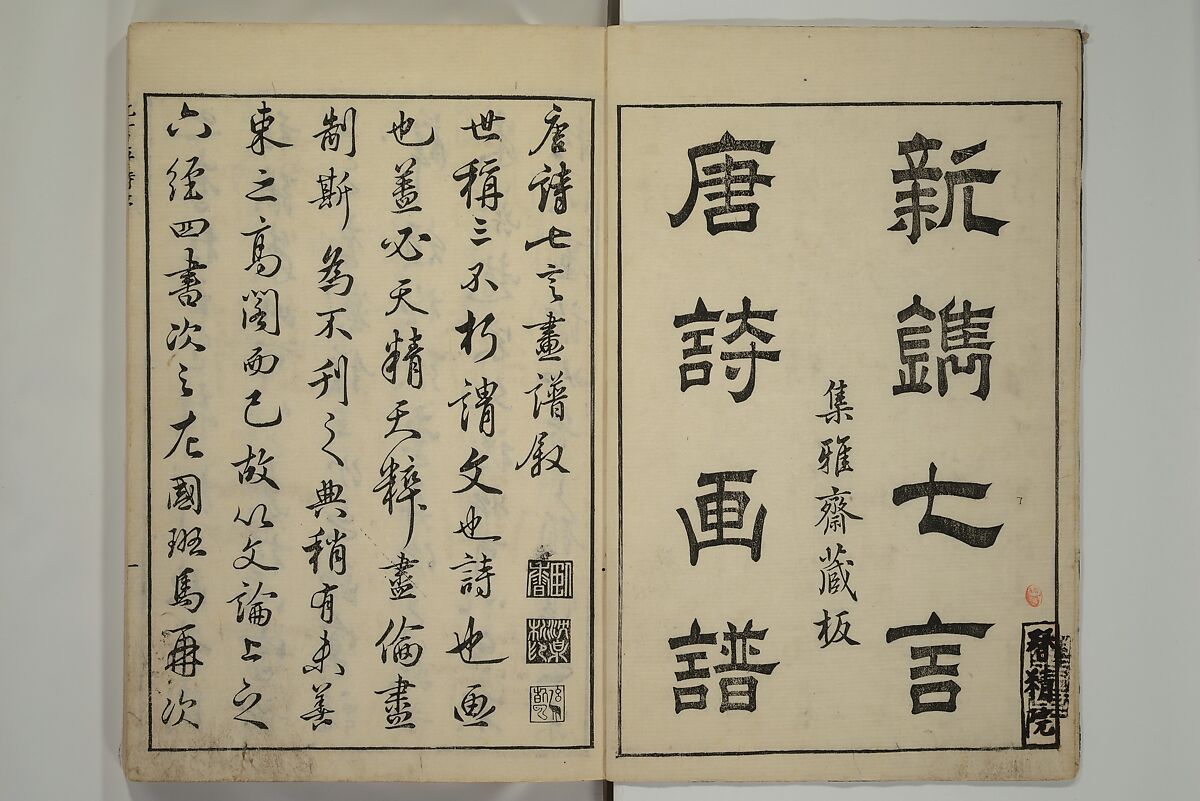 新鐫七言
集雅齋蔵板
唐詩画譜
唐詩七言畫譜敘
世稱三不朽謂文也詩也画
也蓋必天精天粹盡倫盡
制斯為不刊之典稍有未善
束之高閣而已故以文論上之
六經四書次之左國班馬再次